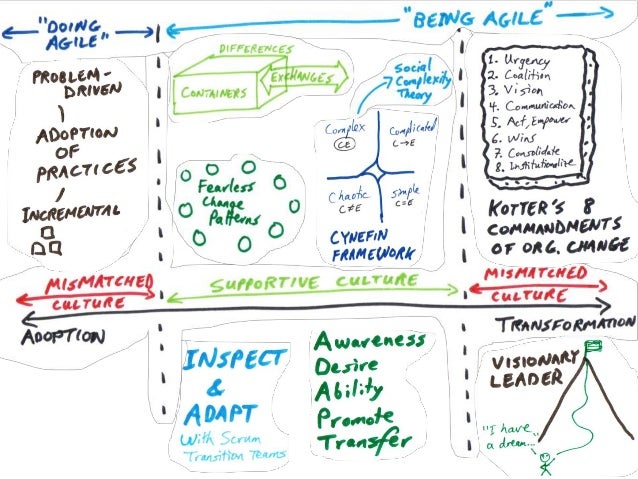 "DOING
AGILE"
"BEING AGILE"
PROBLEM-
DRIVEN
ADOPTION
OF
PRACTICES
INCREMENTAL
DIFFERENCES
CONTAINERS
EXCHANGES
Fearless
Change
Patterns
Social
Complexity
Theory
Complex
CE
Complicated
C→E
Chaotic
C≠E
simple
C=E
CYNEFIN
FRAMEWORK
1. Urgency
2. Coalition
3. Vision
4. Communication
5. Act, Empower
6. Wins
7. Consolidate
8. Institutionalize
KOTTER'S 8
COMMANDMENTS
OF ORG. CHANGE
MISMATCHED
CULTURE
SUPPORTIVE CULTURE
MISMATCHED
CULTURE
ADOPTION
TRANSFORMATION
INSPECT
&
ADAPT
With Scrum
Transition Teams
Awareness
Desire
Ability
Promote
Transfer
VISIONARY
LEADER
"I have
a dream..."